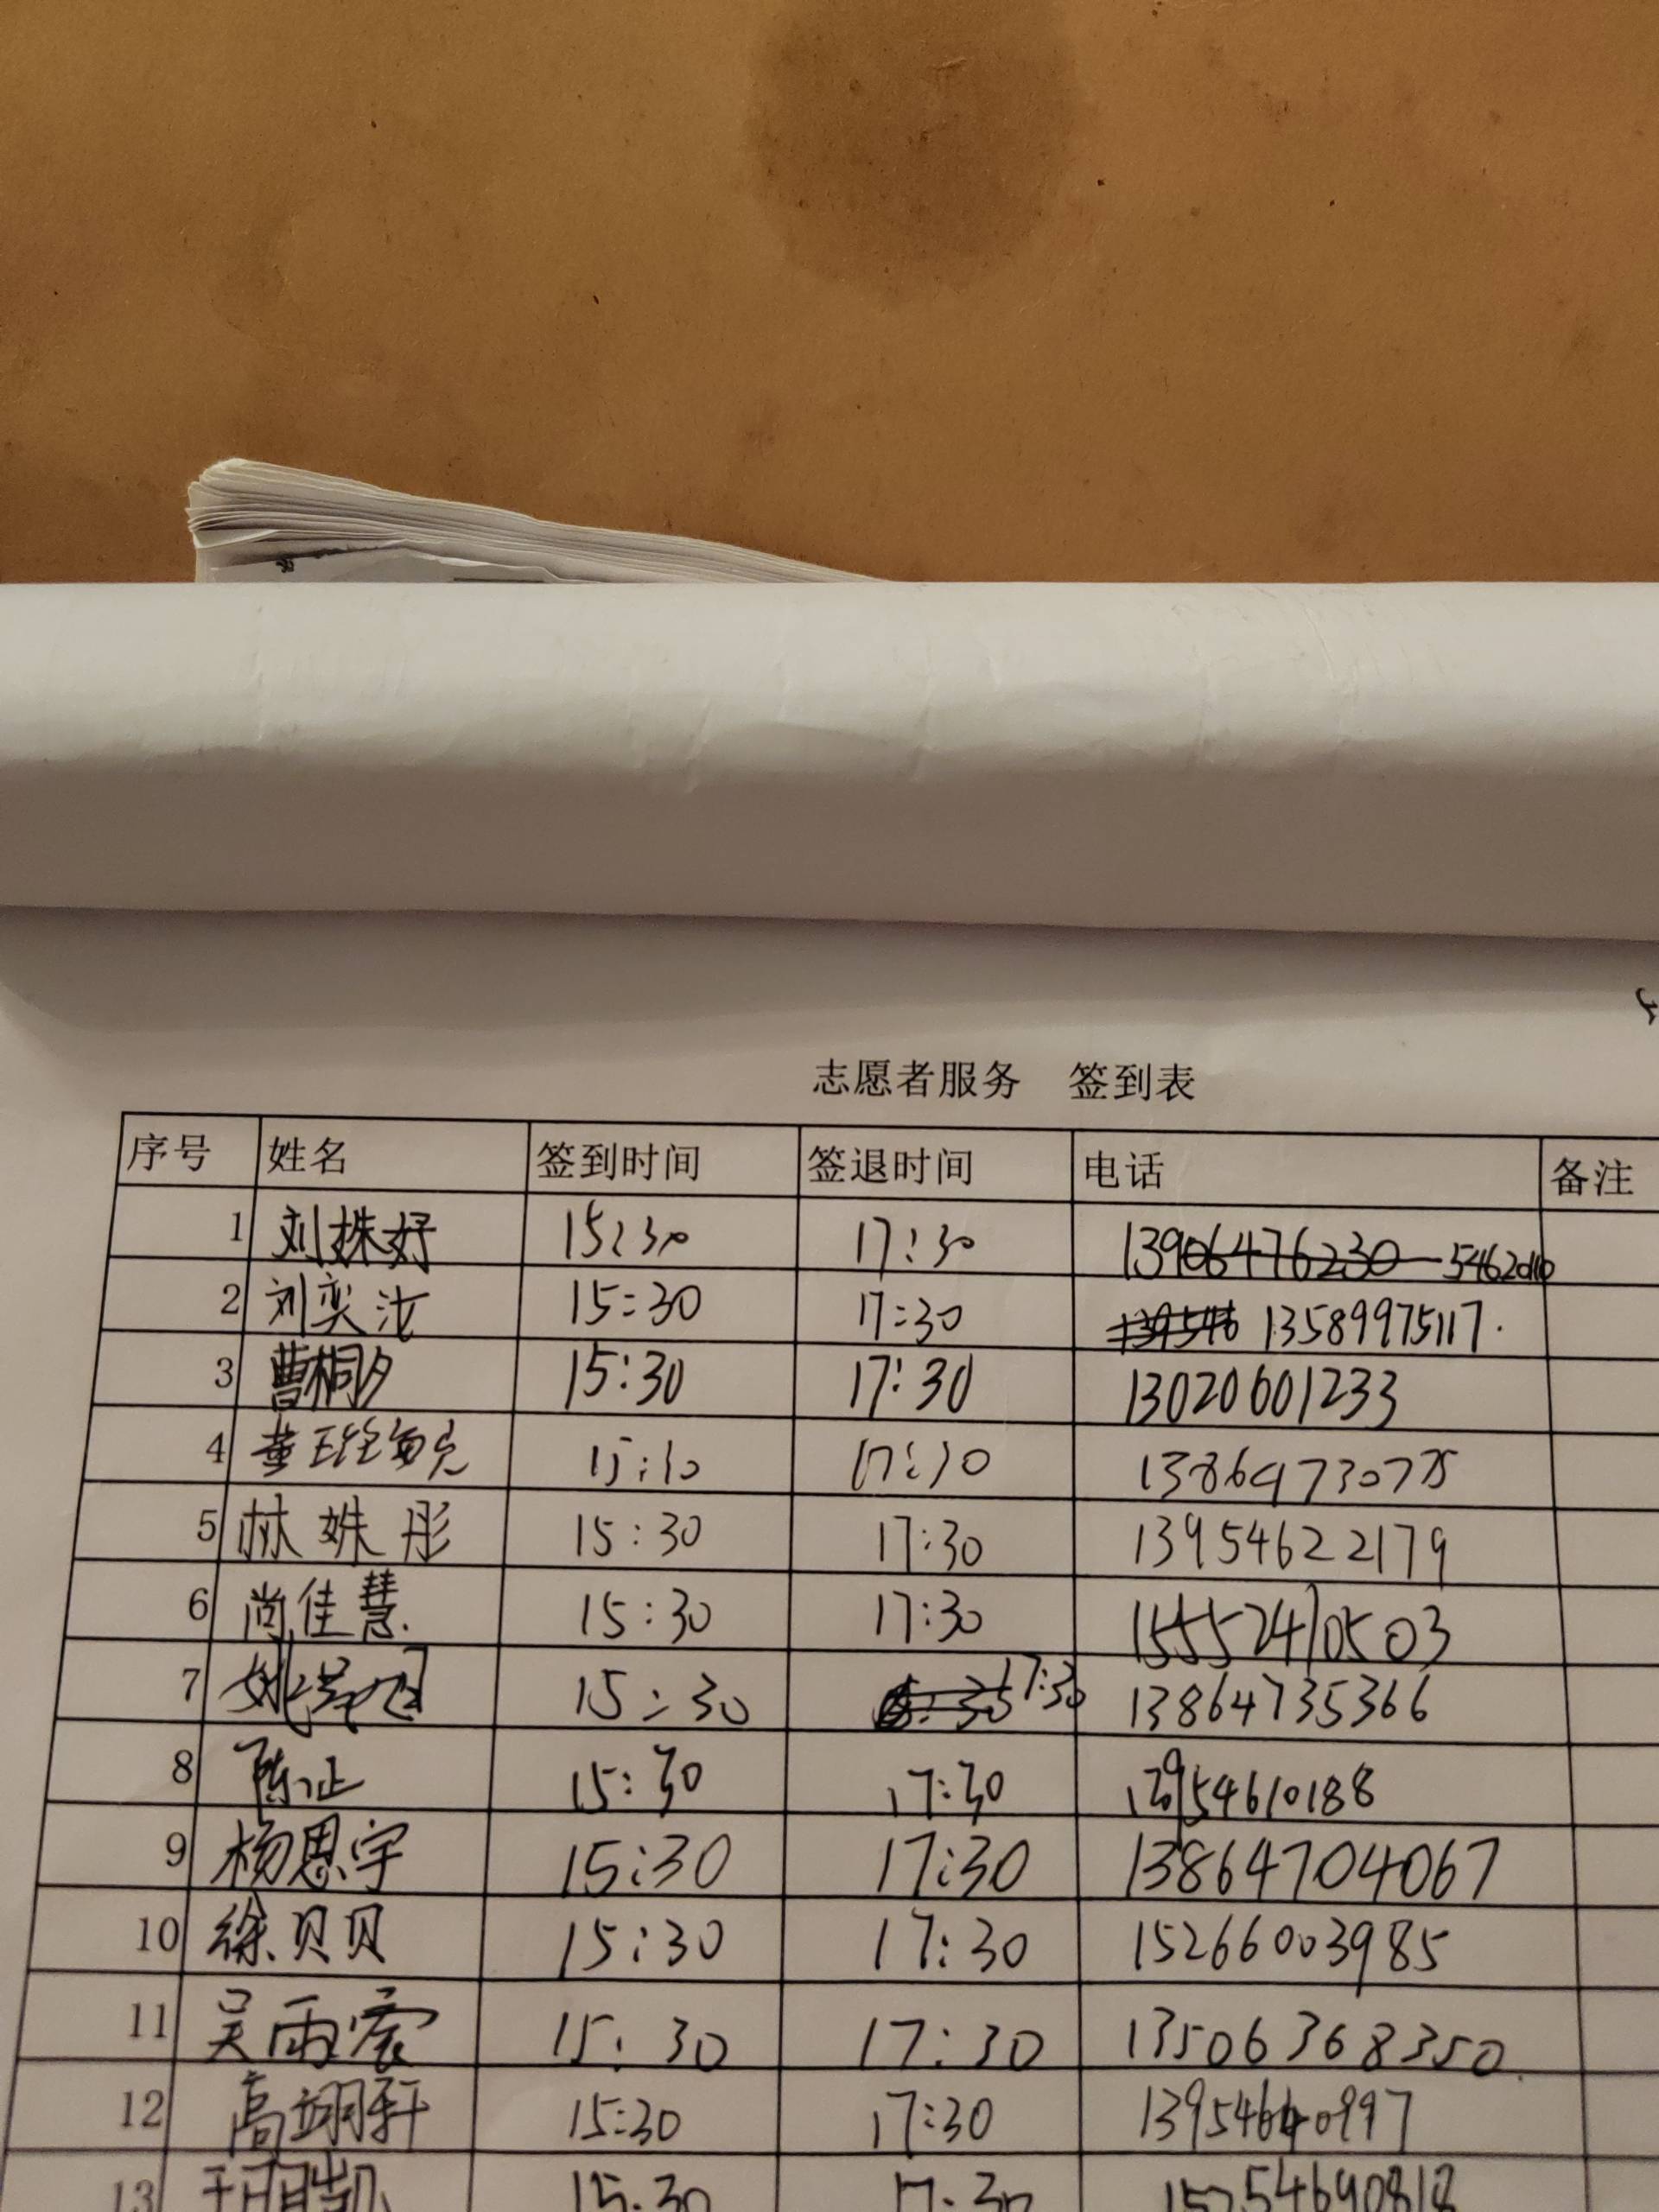 志愿者服务 签到表
序号 姓名 签到时间 签退时间 电话 备注
1 刘姝妤 15:30 17:30
2 刘奕 15:30 17:30 13589975117.
3 曹桐夕 15:30 17:30 13020601233
4 董 15:30 17:30
5 林姝彤 15:30 17:30 13954622179
6 尚佳慧 15:30 17:30 15552410503
7 姚 15:30 17:30 13864735366
8 陈正 15:30 17:30 13954610188
9 杨思宇 15:30 17:30 13864704067
10 徐贝贝 15:30 17:30 15266003985
11 吴雨宸 15:30 17:30 13506368350
12 高翊轩 15:30 17:30
13 15:30 17:30